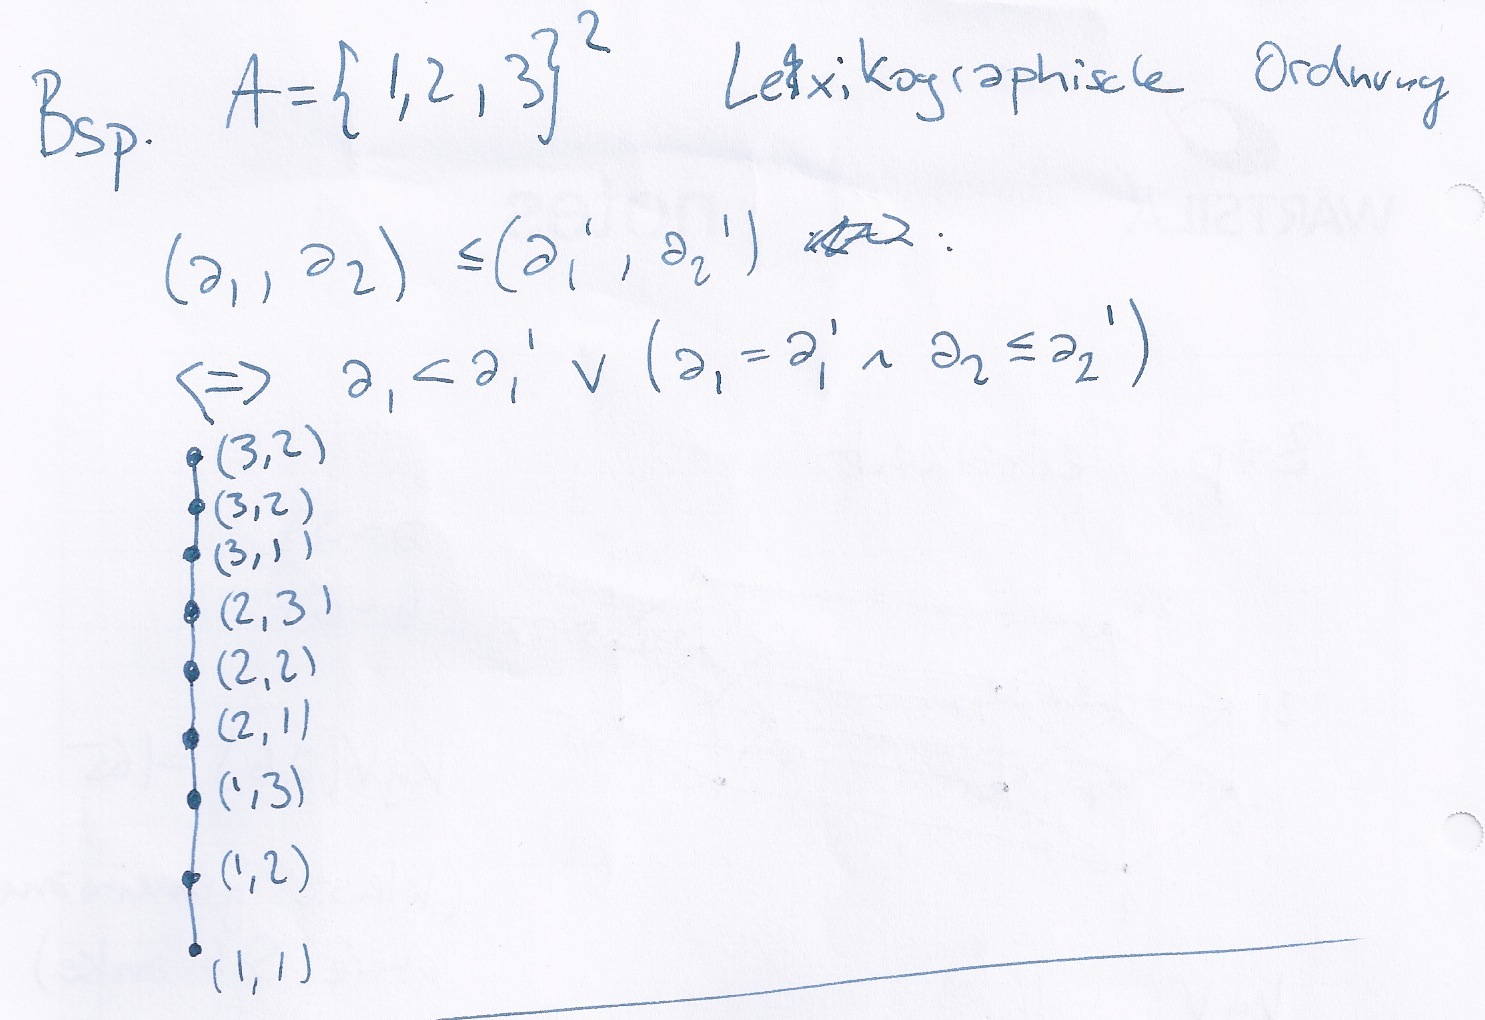 Bsp. A={1,2,3}² Lexikographische Ordnung
(a₁, a₂) ≤ (a₁', a₂') :
<=> a₁ < a₁' ∨ (a₁ = a₁' ∧ a₂ ≤ a₂')
(3,2)
(3,2)
(3,1)
(2,3)
(2,2)
(2,1)
(1,3)
(1,2)
(1,1)